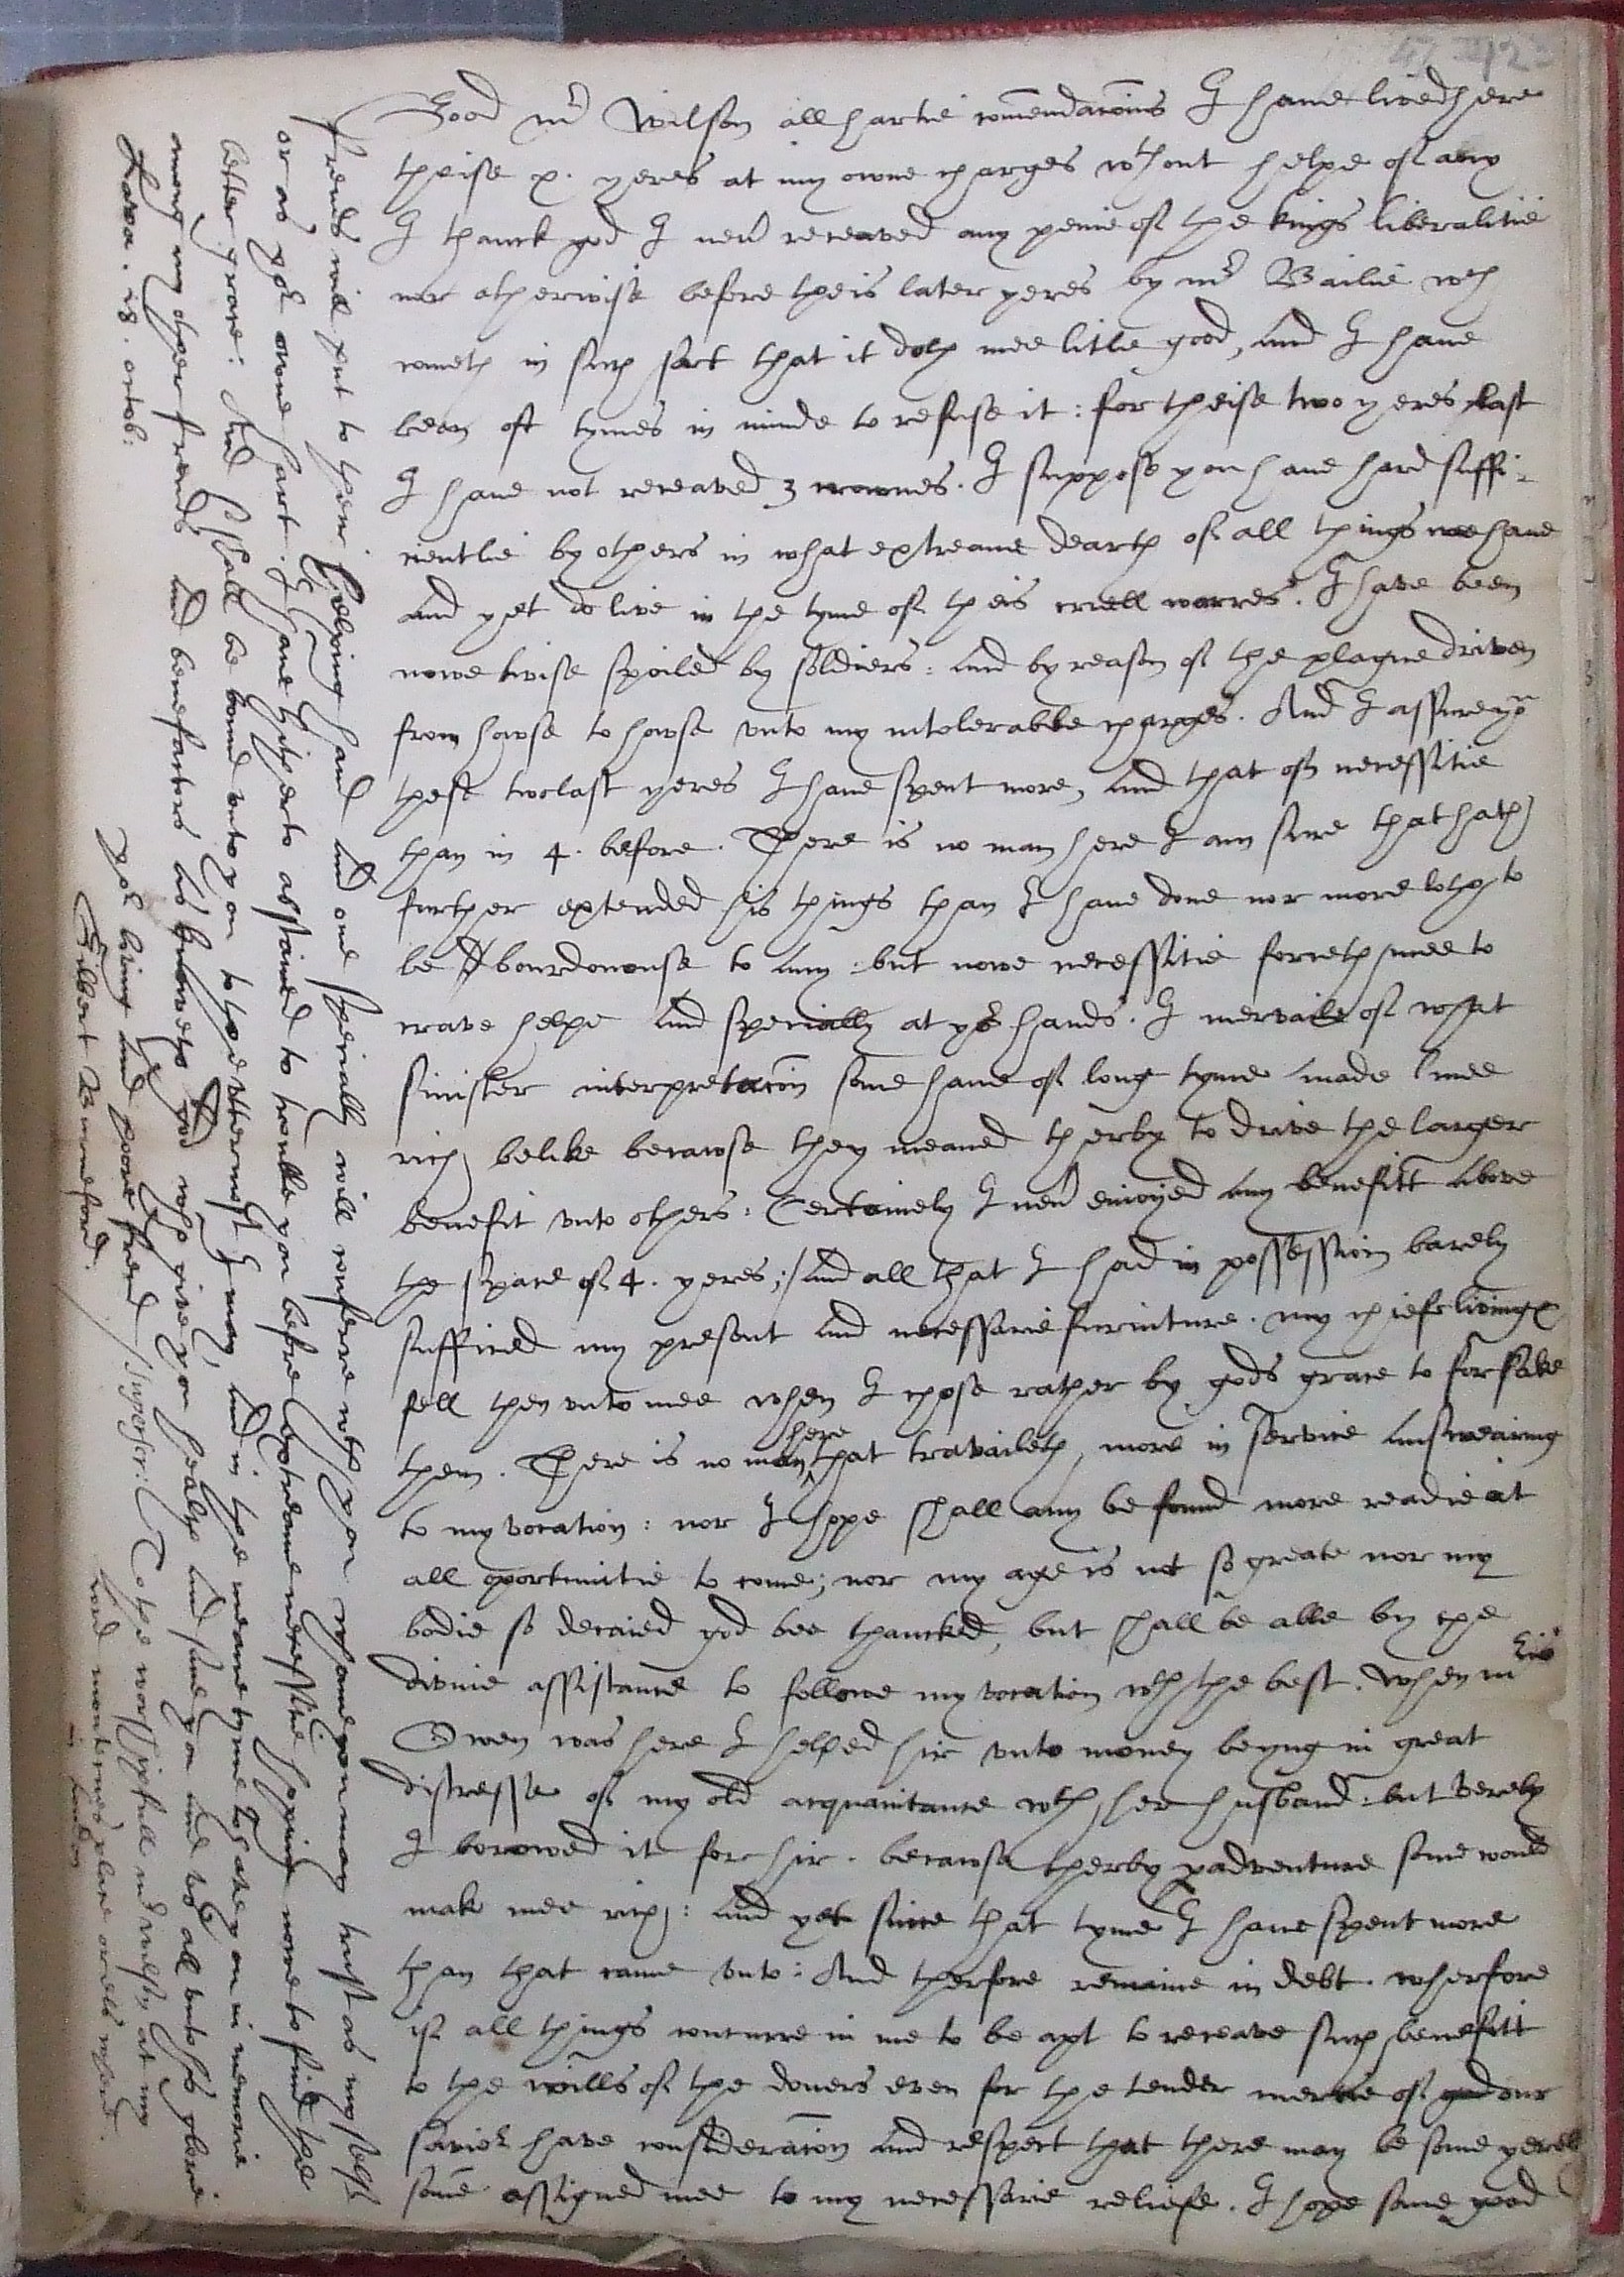 Good mr Wilson all hartie comendacons I have lived here
theise x. yeres at my owne charges wthout helpe of any
I thanck god I nevr receaved any penie of the kings liberalitie
nor otherwise before theis later yeres by mr Bailie wch
cometh in such sort that it doth mee litle good, and I have
been oft tymes in minde to refuse it: for theise two yeres last
I have not receaved 3 crownes. I suppose you have hard suffi-
cientlie by others in what extreame dearth of all things wee have
and yet do live in the tyme of theis cruell warres. I have been
nowe twise spoiled by soldiers: and by reason of the plague driven
from howse to howse unto my intolerable charges. And I assure you
these two last yeres I have spent more, and that of necessitie
than in 4. before. There is no man here I am sure that hath
further extended his things than I have done nor more loth to
be bourdonouse to any: but nowe necessitie forceth mee to
crave helpe and specially at yor hands. I mervaile of what
sinister interpretacon some have of long tyme made mee
rich belike becawse they meaned therby to drive the larger
benefit unto others: Certainely I nevr enioyed any benefitt above
the space of 4. yeres; and all that I had in possession barely
sufficed my present and necessarie furniture. my chiefe livings
fell then unto mee when I chose rather by gods grace to forsake
them. There is no man here that travaileth more in service answearing
to my vocation: nor I hope shall any be found more readie at
all oportunitie to come; nor my age is not so greate nor my
bodie so decaied god bee thancked, but shall be able by the
divine assistance to followe my vocation wth the best. When mris
Owen was here I helped hir unto money beyng in great
distresse of my old acquaintance wth her husband: but verely
I borowed it for hir. becawse therby padventure some would
make mee rich: and yet since that tyme I have spent more
than that came unto: And therfore remaine in debt. wherfore
if all things concurre in me to be apt to receave such benefitt
to the wills of the doners even for the tender mercie of god our
savior have consideracon and respect that there may be some yerelie
some assigned mee to my necessarie reliefe. I hope some good
frends will put to their helping hand and one specially will conferre wth you whome you may trust as my selfe
or as yor owne hart. I have hitherto abstained to trouble you before extreame necessitie hoping nowe to find the
better grace: And shall be bound unto you to the uttermost I may and in the meane tyme to have you in memorie
among my other frends and benefactors as knoweth god who give you health and save you and us all unto his glorie
Lova. 18. octob:
yor loving and poore frend
Gilbert Burneford.
Superscr: To the worshipfull mr Wilson at my
lord mountegues place overis myhed.
in london